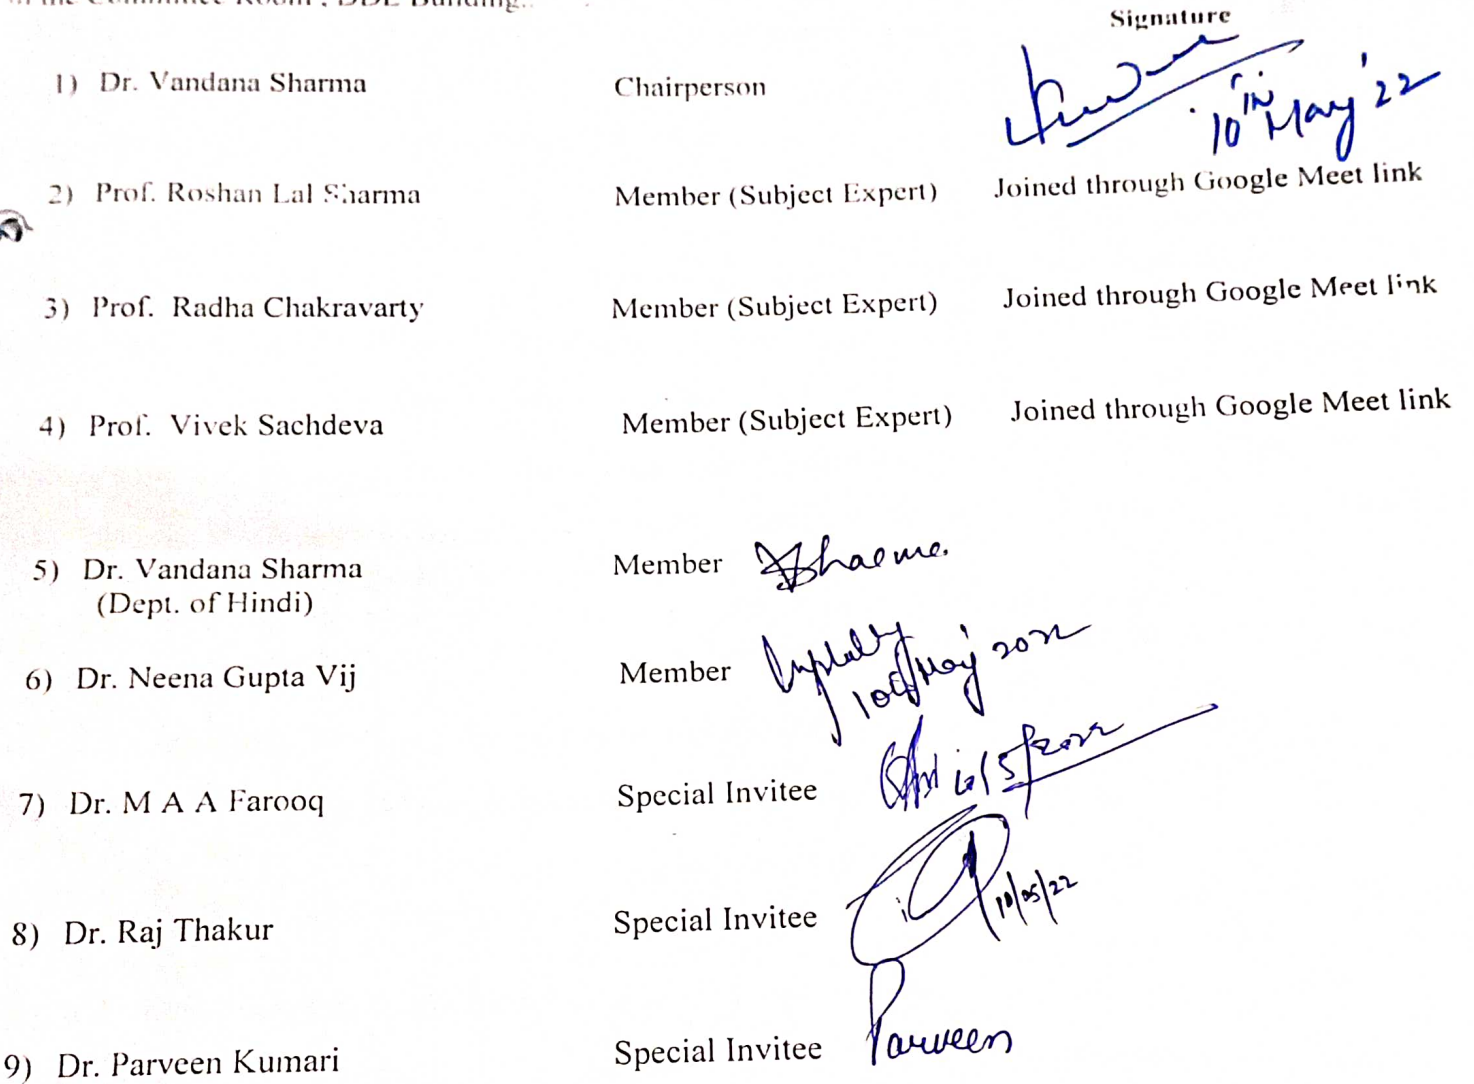 Signature
1) Dr. Vandana Sharma Chairperson
10th May '22
2) Prof. Roshan Lal Sharma Member (Subject Expert) Joined through Google Meet link
3) Prof. Radha Chakravarty Member (Subject Expert) Joined through Google Meet link
4) Prof. Vivek Sachdeva Member (Subject Expert) Joined through Google Meet link
5) Dr. Vandana Sharma Member VSharma.
(Dept. of Hindi)
6) Dr. Neena Gupta Vij Member
10th May 2022
7) Dr. M A A Farooq Special Invitee 10/5/2022
8) Dr. Raj Thakur Special Invitee 10/05/22
9) Dr. Parveen Kumari Special Invitee Parveen